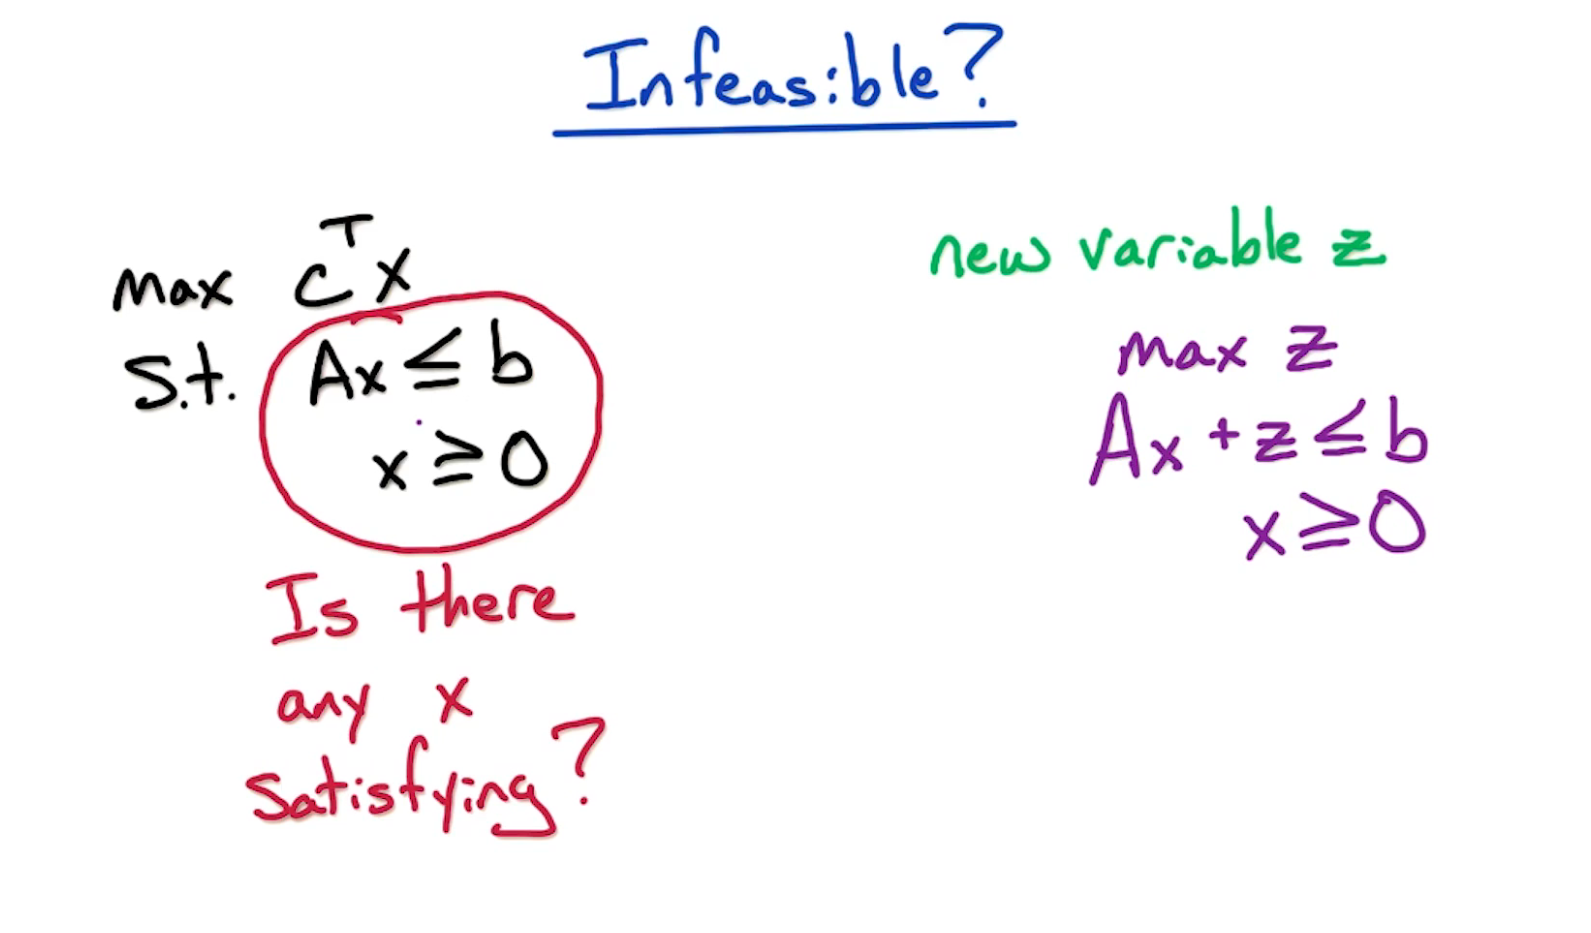 Infeasible?
max cᵀx
s.t. Ax ≤ b
x ≥ 0
Is there
any x
satisfying?
new variable z
max z
Ax + z ≤ b
x ≥ 0